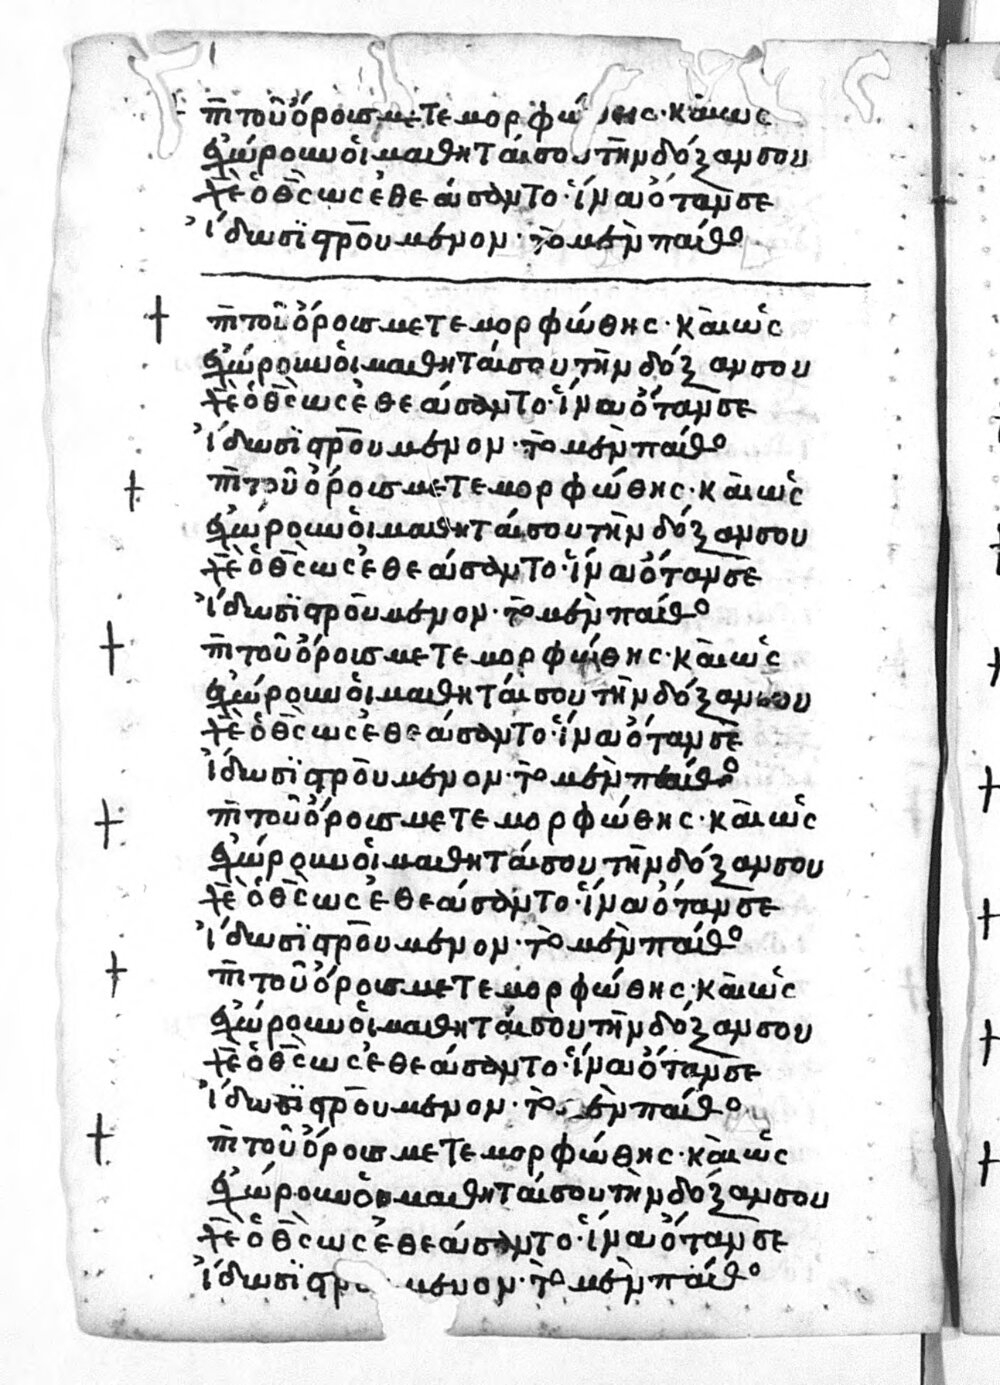 ἐπὶ τοῦ ὄρους μετεμορφώθης· καὶ ὡς
ἐχώρουν οἱ μαθηταί σου τὴν δόξαν σου
χ̅ε̅ ὁ θ̅ς̅ ὡς ἐθεάσαντο· ἵνα ὅταν σε
ἴδωσι σ̅ρ̅ούμενον· τὸ μὲν πάθο
ἐπὶ τοῦ ὄρους μετεμορφώθης· καὶ ὡς
ἐχώρουν οἱ μαθηταί σου τὴν δόξαν σου
χ̅ε̅ ὁ θ̅ς̅ ὡς ἐθεάσαντο· ἵνα ὅταν σε
ἴδωσι σ̅ρ̅ούμενον· τὸ μὲν πάθο
ἐπὶ τοῦ ὄρους μετεμορφώθης· καὶ ὡς
ἐχώρουν οἱ μαθηταί σου τὴν δόξαν σου
χ̅ε̅ ὁ θ̅ς̅ ὡς ἐθεάσαντο· ἵνα ὅταν σε
ἴδωσι σ̅ρ̅ούμενον· τὸ μὲν πάθο
ἐπὶ τοῦ ὄρους μετεμορφώθης· καὶ ὡς
ἐχώρουν οἱ μαθηταί σου τὴν δόξαν σου
χ̅ε̅ ὁ θ̅ς̅ ὡς ἐθεάσαντο· ἵνα ὅταν σε
ἴδωσι σ̅ρ̅ούμενον· τὸ μὲν πάθο
ἐπὶ τοῦ ὄρους μετεμορφώθης· καὶ ὡς
ἐχώρουν οἱ μαθηταί σου τὴν δόξαν σου
χ̅ε̅ ὁ θ̅ς̅ ὡς ἐθεάσαντο· ἵνα ὅταν σε
ἴδωσι σ̅ρ̅ούμενον· τὸ μὲν πάθο
ἐπὶ τοῦ ὄρους μετεμορφώθης· καὶ ὡς
ἐχώρουν οἱ μαθηταί σου τὴν δόξαν σου
χ̅ε̅ ὁ θ̅ς̅ ὡς ἐθεάσαντο· ἵνα ὅταν σε
ἴδωσι σ̅ρ̅ούμενον· τὸ μὲν πάθο
ἐπὶ τοῦ ὄρους μετεμορφώθης· καὶ ὡς
ἐχώρουν οἱ μαθηταί σου τὴν δόξαν σου
χ̅ε̅ ὁ θ̅ς̅ ὡς ἐθεάσαντο· ἵνα ὅταν σε
ἴδωσι μενον· τὸ μὲν πάθο